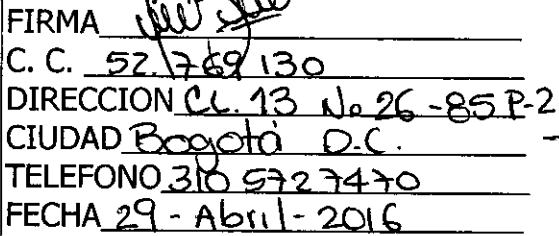 FIRMA
C. C. 52.769 130
DIRECCION CL. 13 No 26 -85 P-2
CIUDAD Bogotá D.C. -
TELEFONO 310 5727470
FECHA 29 - Abril - 2016